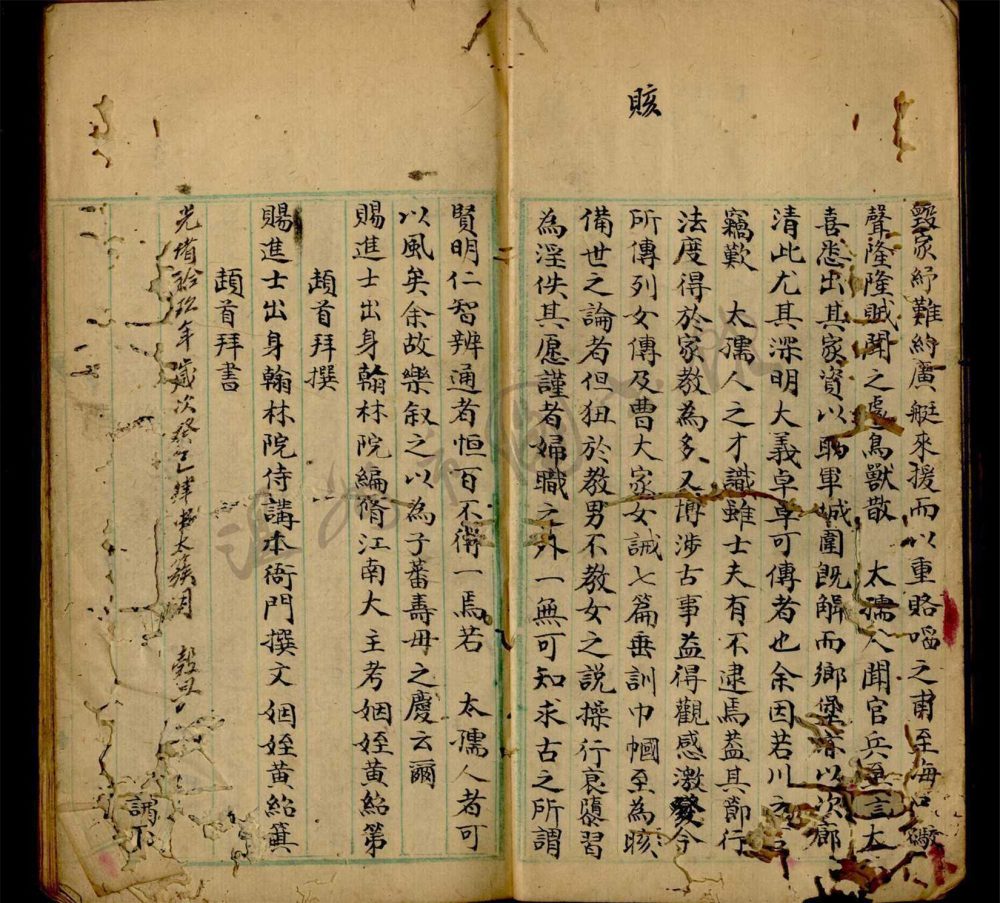 賅
毀家紓難約廣艇來援而以重賂啗之甫至海口礮
聲隆隆賊聞之遽鳥獸散　太孺人聞官兵至言太
喜悉出其家資以助軍城圍既解而鄉堡亦以次
清此尤其深明大義卓卓可傳者也余因若川之
竊歎　太孺人之才識雖士夫有不逮焉蓋其節行
法度得於家教為多又博涉古事益得觀感激發今
所傳列女傳及曹大家女誡七篇垂訓巾幗至為賅
備世之論者但狃於教男不教女之說操行衰隳習
為淫佚其愿謹者婦職之外一無可知求古之所謂
賢明仁智辨通者恒百不得一焉若　太孺人者可
以風矣余故樂叙之以為子蕃壽母之慶云爾
賜進士出身翰林院編脩江南大主考姻姪黃紹第
頓首拜撰
賜進士出身翰林院侍講本衙門撰文姻姪黃紹箕
頓首拜書
光緒拾玖年歲次癸巳律中太簇月　穀旦
謂下